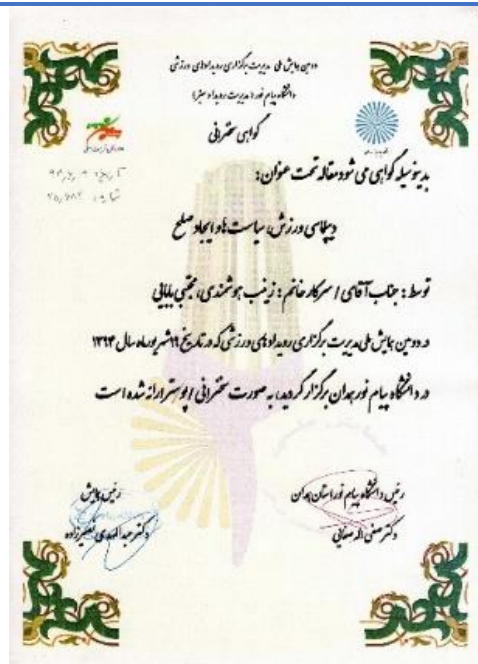 دومین همایش ملی مدیریت برگزاری رویدادهای ورزشی
دانشگاه پیام نور (مدیریت رویداد سبز)
گواهی سخنرانی
بدینوسیله گواهی می شود مقاله تحت عنوان:
دیپلماسی ورزش، سیاست ها و ایجاد صلح
توسط: جناب آقای / سرکار خانم: زینب هوشمندی، مجتبی بابایی
در دومین همایش ملی مدیریت برگزاری رویدادهای ورزشی که در تاریخ ۱۹ شهریورماه سال ۱۳۹۴
در دانشگاه پیام نور همدان برگزار گردید، به صورت سخنرانی / پوستر ارائه شده است
رئیس دانشگاه پیام نور استان همدان
رئیس همایش
دکتر صفی اله صفایی
دکتر عبدالمهدی نصیرزاده